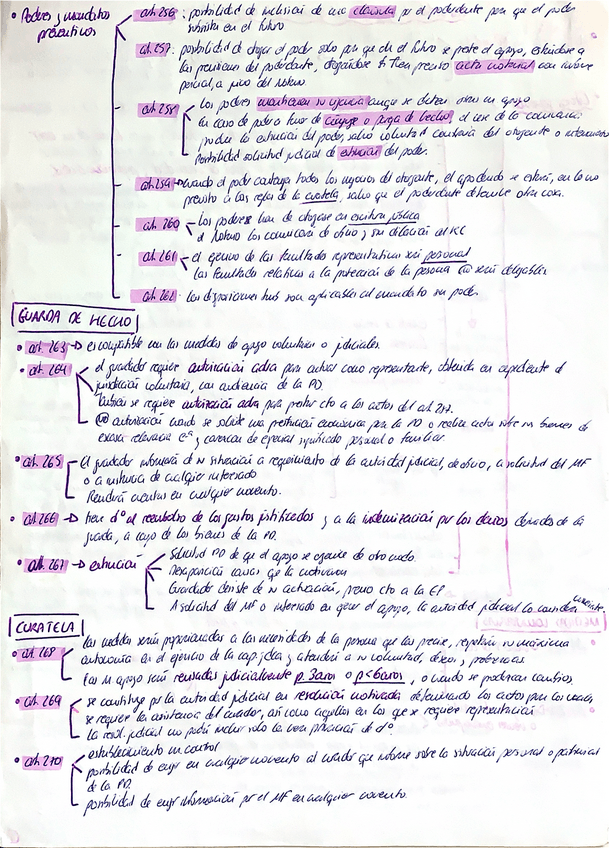 • Poderes y mandatos preventivos
art. 256: posibilidad de inclusión de una cláusula por el poderdante para que el poder
subsista en el futuro
art. 257: posibilidad de otorgar el poder solo para que en el futuro se preste el apoyo, estándose a
las previsiones del poderdante, otorgándose si fuera preciso acta notarial con informe
pericial, a juicio del Notario.
art. 258 los poderes mantienen su vigencia aunque se deban otros en apoyo
en caso de poder a favor de cónyuge o pareja de hecho, el cese de la convivencia
produce la extinción del poder, salvo voluntad contraria del otorgante o
posibilidad solicitud judicial de extinción del poder.
art. 259 → cuando el poder contenga todos los negocios del otorgante, el apoderado se estará, en lo no
previsto a las reglas de la curatela, salvo que el poderdante determine otra cosa.
art. 260 los poderes han de otorgarse en escritura pública
el Notario los comunicará de oficio y sin dilación al RC
art. 261 el ejercicio de las facultades representativas será personal
las facultades relativas a la protección de la persona no serán delegables
art. 262: las disposiciones son aplicables al mandato sin poder.
GUARDA DE HECHO
• art. 263 → es compatible con las medidas de apoyo voluntarias o judiciales.
• art. 264 el guardador requiere autorización para actuar como representante, obtenida en expediente de
jurisdicción voluntaria, con audiencia de la PD.
también se requiere autorización para prestar cto a los actos del art. 287.
NO autorización cuando se solicite una prestación económica para la PD o realice actos sobre sus bienes de
escasa relevancia ecª y carezcan de especial significado personal o familiar.
• art. 265 El guardador informará de su situación a requerimiento de la autoridad judicial, de oficio, a solicitud del MF
o a instancia de cualquier interesado
Rendirá cuentas en cualquier momento.
• art. 266 → tiene dº al reembolso de los gastos justificados y a la indemnización por los daños derivados de la
guarda, a cargo de los bienes de la PD.
• art. 267 → extinción
Solicitud PD de que el apoyo se organice de otro modo.
Desaparición causas que la motivaron
Guardador desiste de su actuación, previo cto a la EP
A solicitud del MF o interesado en ejercer el apoyo, la autoridad judicial lo considera conveniente.
CURATELA
• art. 268 las medidas serán proporcionadas a las necesidades de la persona que las precise, respetarán su máxima
autonomía en el ejercicio de la cap. jdca y atenderán a su voluntad, deseos y preferencias.
Las M apoyo serán revisadas judicialmente p. 3 años o p < 6 años, o cuando se produzcan cambios.
• art. 269 se constituye por la autoridad judicial en resolución motivada determinando los actos para los cuales
se requiere la asistencia del curador, así como aquellos en los que se requiere representación
la resol. judicial no podrá incluir solo la mera privación de dº.
• art. 270 establecimiento en control
posibilidad de exigir en cualquier momento al curador que informe sobre la situación personal o patrimonial
de la PD.
posibilidad de exigir información por el MF en cualquier momento.